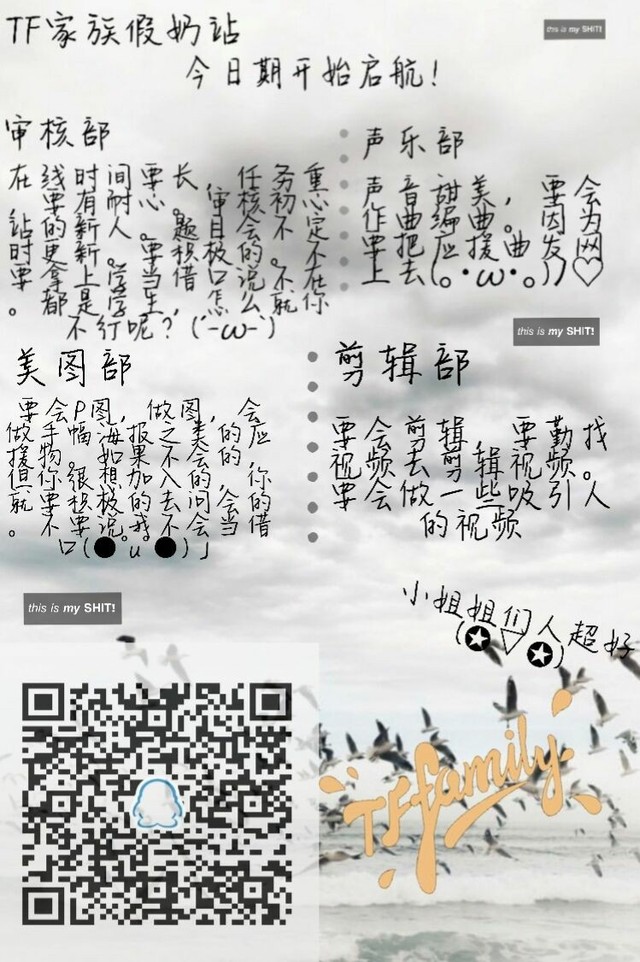 TF家族假奶站
今日期开始启航!
this is my SHIT!
审核部
在线时间要长,任务重
要有耐心。审核初心
站的新人。题目会不定
时更新。要积极的说。不
要拿上学当借口。不在
。都是学生,怎么就你
不行呢?(´-ω-`)
声乐部
声音甜美,要会
作曲编曲。因为
要把应援曲发网
上去(。・ω・。))♡
this is my SHIT!
美图部
要会P图,做图,会
做手幅。海报之美的应
援物。如果不会的,你
但你很想加入的
就要积极的去问会的
不要说。我不会当借
口(●u●)」
剪辑部
要会剪辑,要勤找
视频去剪辑视频。
要会做一些吸引人
的视频
this is my SHIT!
小姐姐们人超好
(✪▽✪)
TFfamily